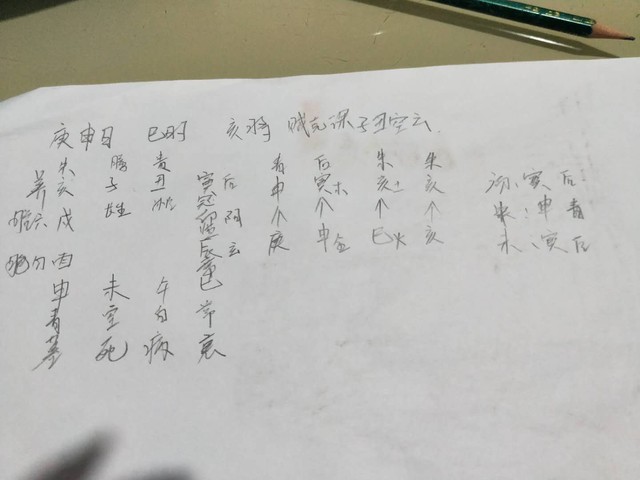 庚申日 巳时 亥将 贼克课子丑空亡
朱 腾 贵 青 后 朱 朱
养亥 子 丑 寅后 申 寅木 亥土 亥 初:寅后
戌 姓 ↑ ↑ ↑ ↑ 中:申青
酉 辰玄 庚 申金 巳火 亥 末:寅后
申 未 午 巳
青 空 白 常
墓 死 病 衰